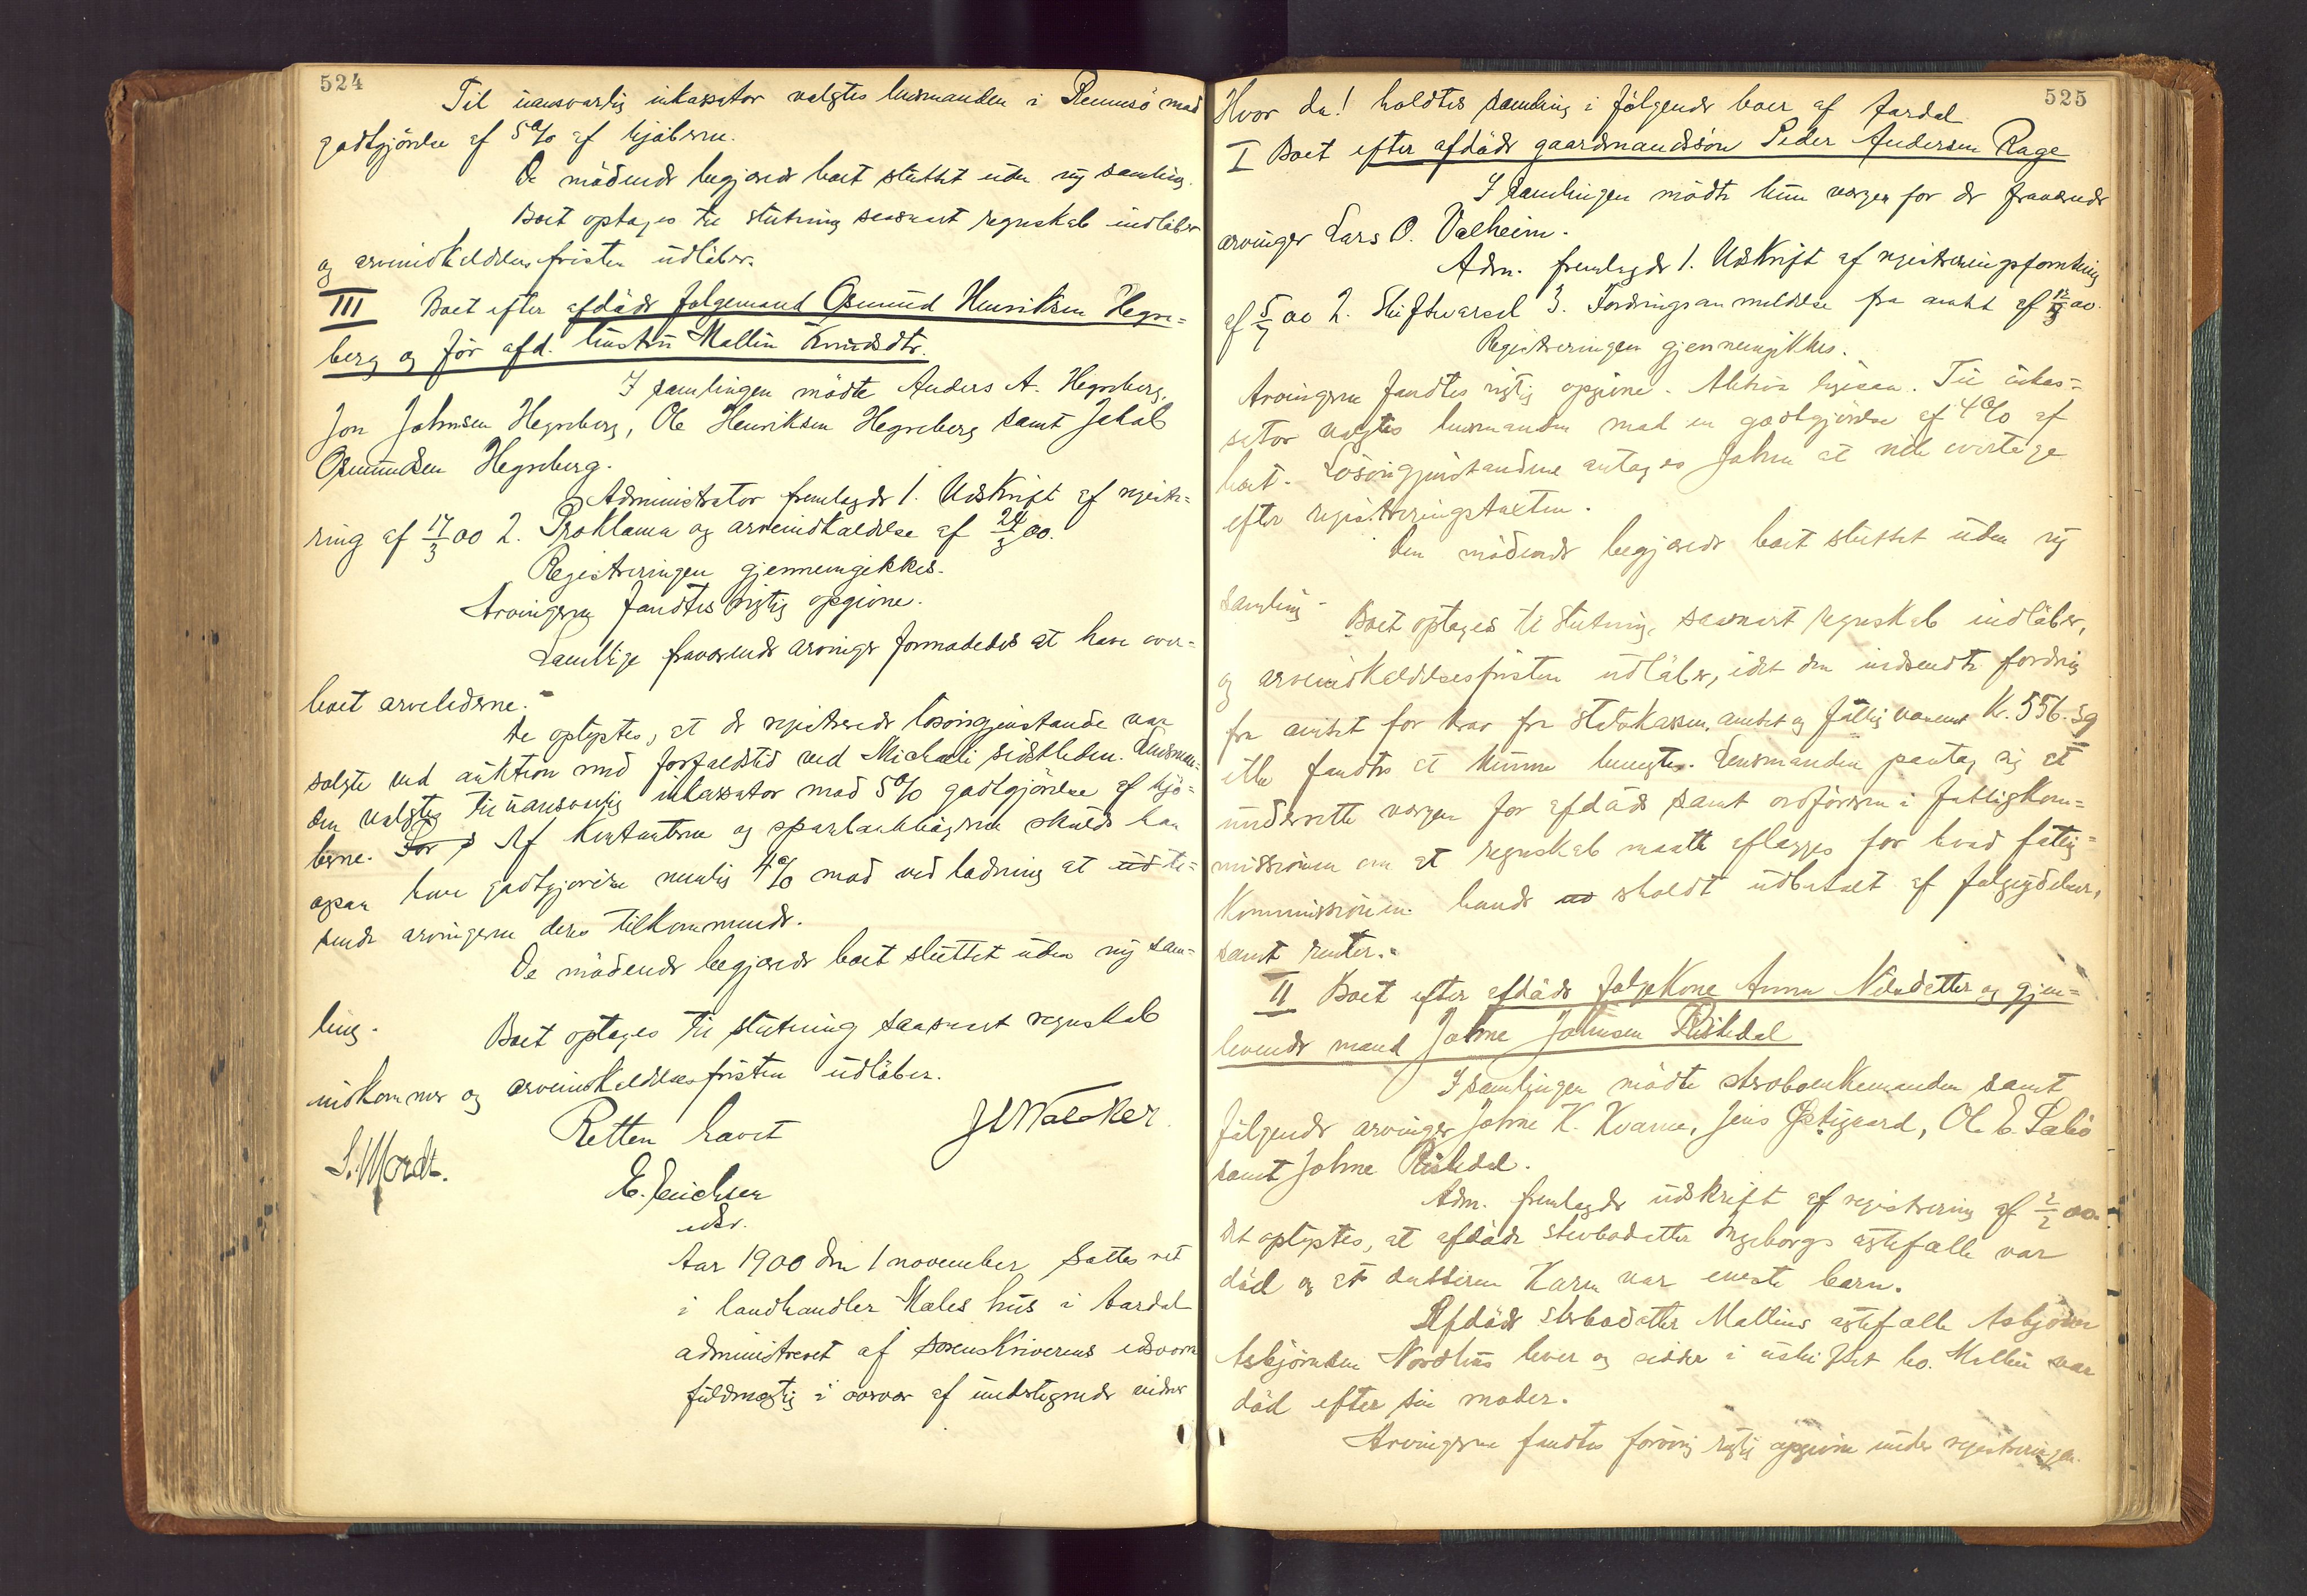 524
Til uansvarlig inkassator valgtes lensmanden i Rennesö mod
godtgjörelse af 5% af kjöberne.
De mödende begjærede boet sluttet uden ny samling.
Boet optages til slutning saasnart regnskab indlöber
og arveindkaldelsesfristen udlöber.
III Boet efter afdöde folgemand Osmund Henriksen Hegre=
berg og för afd. hustru Mallin Knudsdtr.
I samlingen mödte Anders A. Hegreberg,
Jon Johnsen Hegreberg, Ole Henriksen Hegreberg samt Jakob
Osmundsen Hegreberg.
Administrator fremlagde 1. Udskrift af registre=
ring af 17/3 00 2. Proklama og arveindkaldelse af 24/3 00.
Registreringen gjennemgikkes.
Arvingerne fandtes rigtig opgivne.
Samtlige fraværende arvinger formodedes at have over=
levet arveladerne.
De oplystes, at de registrerede lösöregjenstande var
solgte ved auktion med forfaldstid ved Michaeli sidstleden. Lensman=
den valgtes til uansvarlig inkassator mod 5% godtgjörelse af kjö=
berne. For Af kontanterne og sparebankbögerne skulde han
ogsaa have godtgjörelse nemlig 4% mod vederlagning at ud til=
sende arvingerne deres tilkommende.
De mödende begjærede boet sluttet uden ny sam=
ling.
Boet optages til slutning saasnart regnskab
indkommer og arveindkaldelsesfristen udlöber.
Retten hævet
J. Walcker
S. Mordt.
E. Erichsen
edsv.
Aar 1900 den 1 november sattes ret
i landhandler Males hus i Aardal
administreret af sorenskriverens edsvorne
fuldmægtig i overvær af undertegnede vidner
525
Hvor da! holdtes samling i fölgende boer af Aardal
I Boet efter afdöde gaardmandssön Peder Andersen Rage
I samlingen mödte kun vergen for de fraværende
arvinger Lars O. Valheim.
Adm. fremlagde 1. Udskrift af registreringsforretning
af 5/7 00 2. Skiftevarsel 3. Fordringsanmeldelse fra amtet af 12/9 00.
Registreringen gjennemgikkes.
Arvingerne fandtes rigtig opgivne. Aktiva ligesaa. Til inkas=
sator valgtes lensmanden mod en godtgjörelse af 4% af
boet. Lösöregjenstandene antages Johan at ville overtage
efter registreringstaxten.
Den mödende begjærede boet sluttet uden ny
samling.
Boet optages til slutning, saasnart regnskab indlöber,
og arveindkaldelsesfristen udlöber, idet den indsendte fordring
fra amtet for krav fra statskassen, amtet og fattigvæsenet Kr. 556.59
ikke fandtes at kunne benegtes. Lensmanden paatog sig at
underrette vergen for afdöde samt ordföreren i fattigkom=
missionen om at regnskab maatte aflægges for hvad fattig=
kommissionen havde ud oholdt udbetalt af folgeydelser,
samt renter.
II Boet efter afdöde folgekone Anna Nilsdatter og gjen=
levende mand Johne Johnsen Riskedal
I samlingen mödte steboenkemanden samt
fölgende arvinger Johne K. Kvame, Jens Östigaard, Ole E. Salö
samt Johne Riskedal.
Adm. fremlagde udskrift af registrering af 2/2 00.
Det oplystes, at afdöde sterbodatter Ingeborgs ægtefælle var
död og at datteren Karen var eneste barn.
Afdöde sterbodatter Mallins ægtefælle Asbjörn
Asbjörnsen Nordhus lever og sidder i uskiftet bo. Mallin var
död efter sin moder.
Arvingerne fandtes forövrig rigtig opgivne under registreringen.